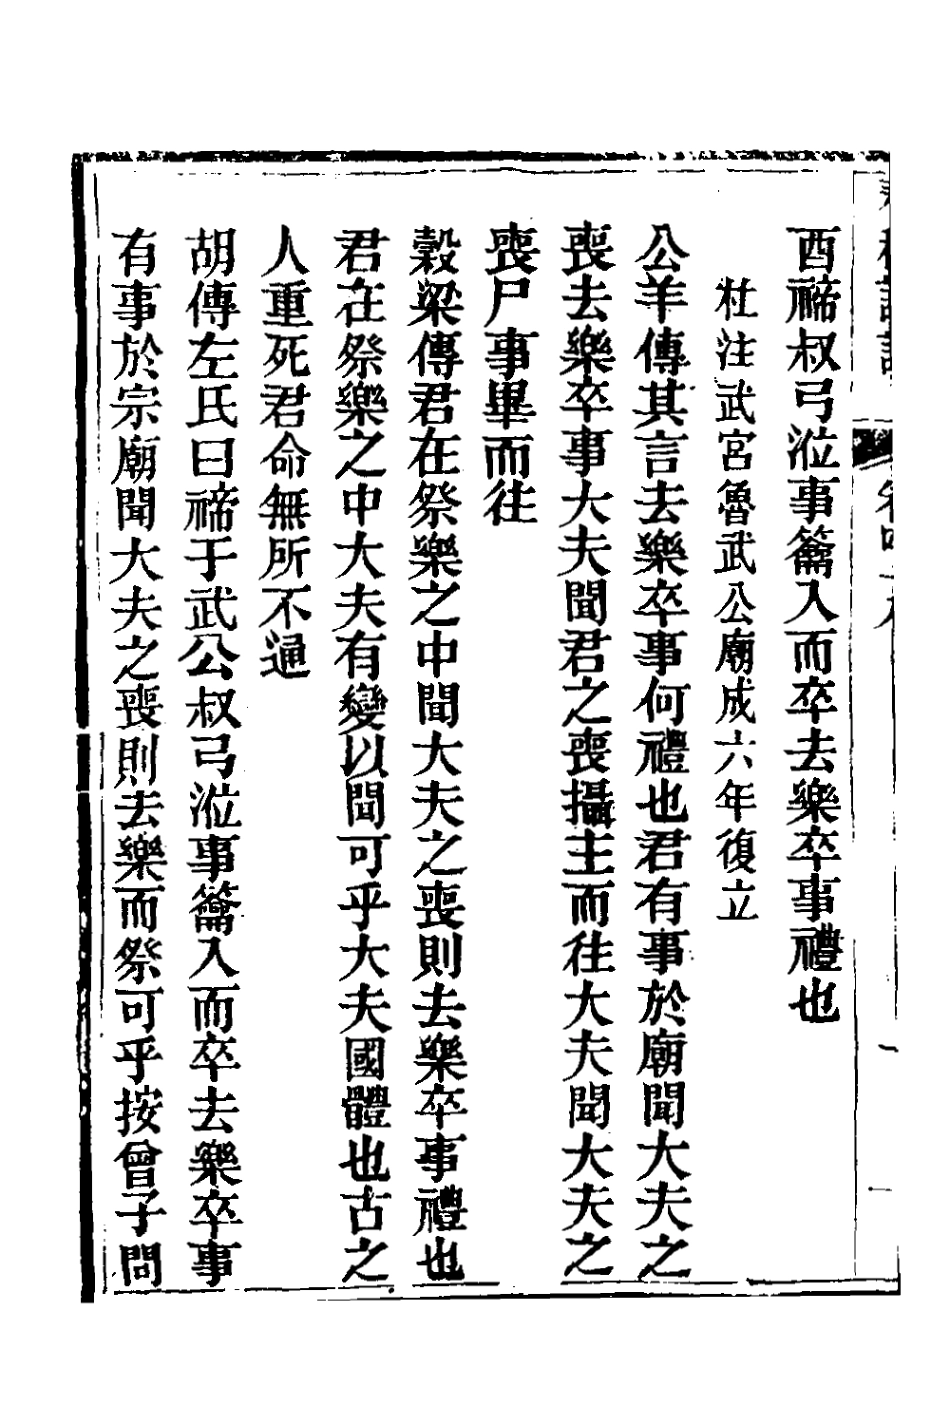 酉禘叔弓涖事籥入而卒去樂卒事禮也
杜注武宮魯武公廟成六年復立
公羊傳其言去樂卒事何禮也君有事於廟聞大夫之
喪去樂卒事大夫聞君之喪攝主而往大夫聞大夫之
喪尸事畢而往
穀梁傳君在祭樂之中聞大夫之喪則去樂卒事禮也
君在祭樂之中大夫有變以聞可乎大夫國體也古之
人重死君命無所不通
胡傳左氏曰禘于武公叔弓涖事籥入而卒去樂卒事
有事於宗廟聞大夫之喪則去樂而祭可乎按曾子問